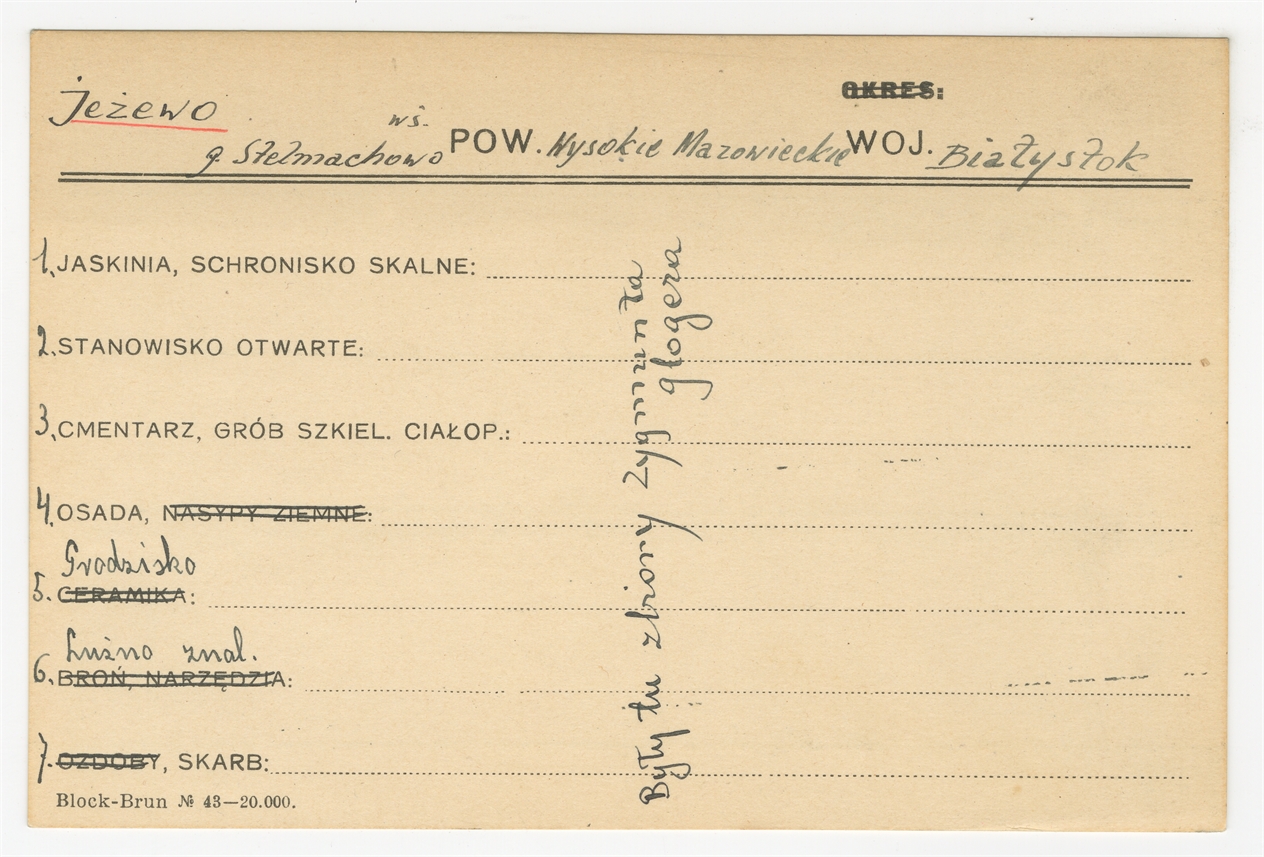 OKRES:
Jeżewo
wś.
g. Stelmachowo POW. Wysokie Mazowieckie WOJ. Białystok
1. JASKINIA, SCHRONISKO SKALNE:
2. STANOWISKO OTWARTE:
3. CMENTARZ, GRÓB SZKIEL. CIAŁOP.:
4. OSADA, NASYPY ZIEMNE:
Grodzisko
5. CERAMIKA:
Luźno znal.
6. BROŃ, NARZĘDZIA:
7. OZDOBY, SKARB:
Block-Brun № 43—20.000.
Były tu zbiory Zygmunta
Glogera